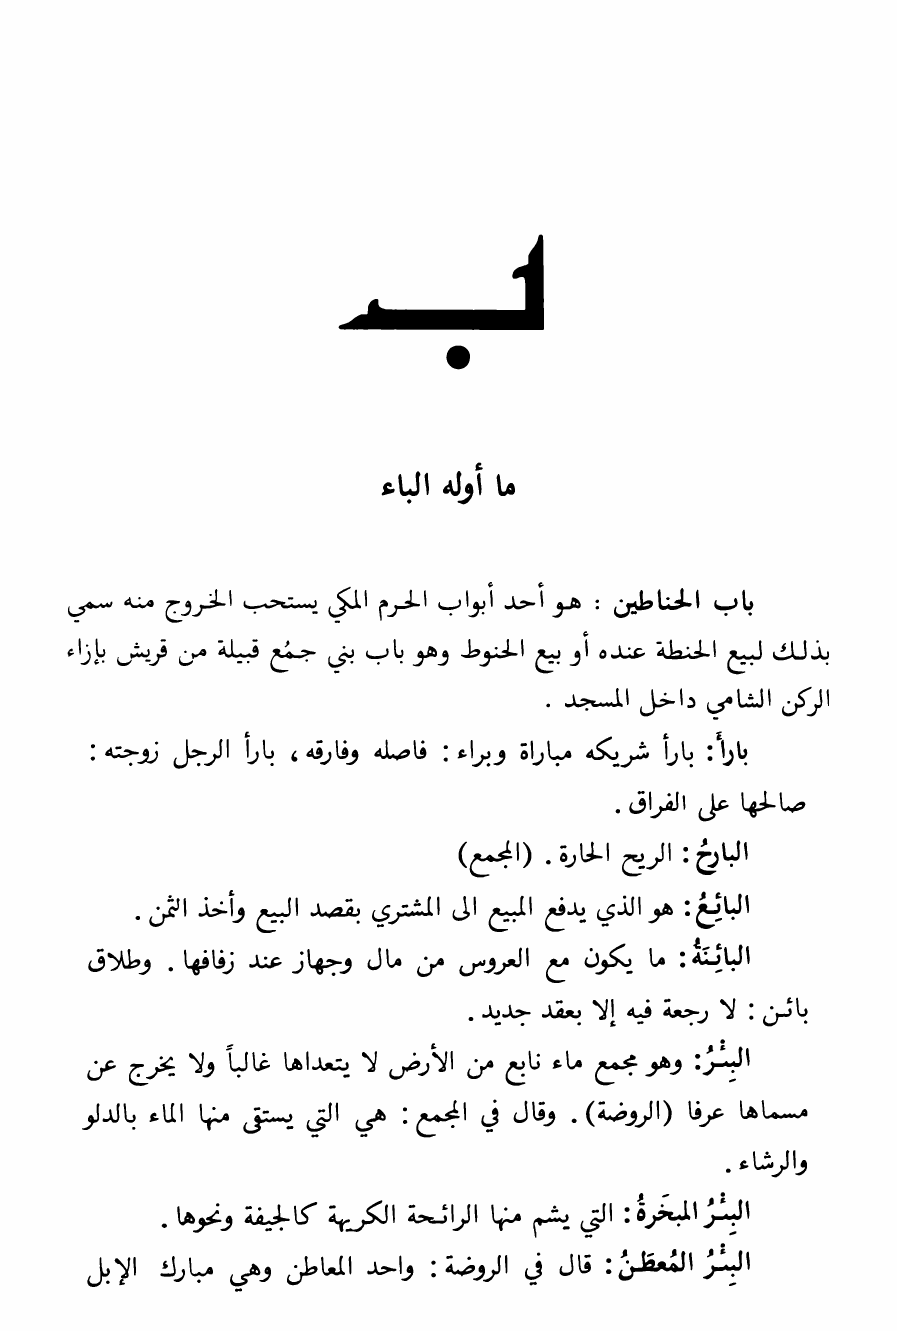 بـ
ما أوله الباء
باب الحناطين : هو أحد أبواب الحرم المكي يستحب الخروج منه سمي
بذلك لبيع الحنطة عنده أو بيع الحنوط وهو باب بني جمُع قبيلة من قريش بإزاء
الركن الشامي داخل المسجد .
بارأَ: بارأ شريكه مباراة وبراء : فاصله وفارقه ، بارأ الرجل زوجته :
صالحها على الفراق .
البارحُ : الريح الحارة . (المجمع)
البائِعُ : هو الذي يدفع المبيع الى المشتري بقصد البيع وأخذ الثمن .
البائِنَةُ : ما يكون مع العروس من مال وجهاز عند زفافها . وطلاق
بائن : لا رجعة فيه إلا بعقد جديد .
البِئْرُ : وهو مجمع ماء نابع من الأرض لا يتعداها غالباً ولا يخرج عن
مسماها عرفا (الروضة) . وقال في المجمع : هي التي يستقى منها الماء بالدلو
والرشاء .
البِئْرُ المبخَرةُ : التي يشم منها الرائحة الكريهة كالجيفة ونحوها .
البِئْرُ المُعطَنُ : قال في الروضة : واحد المعاطن وهي مبارك الإبل